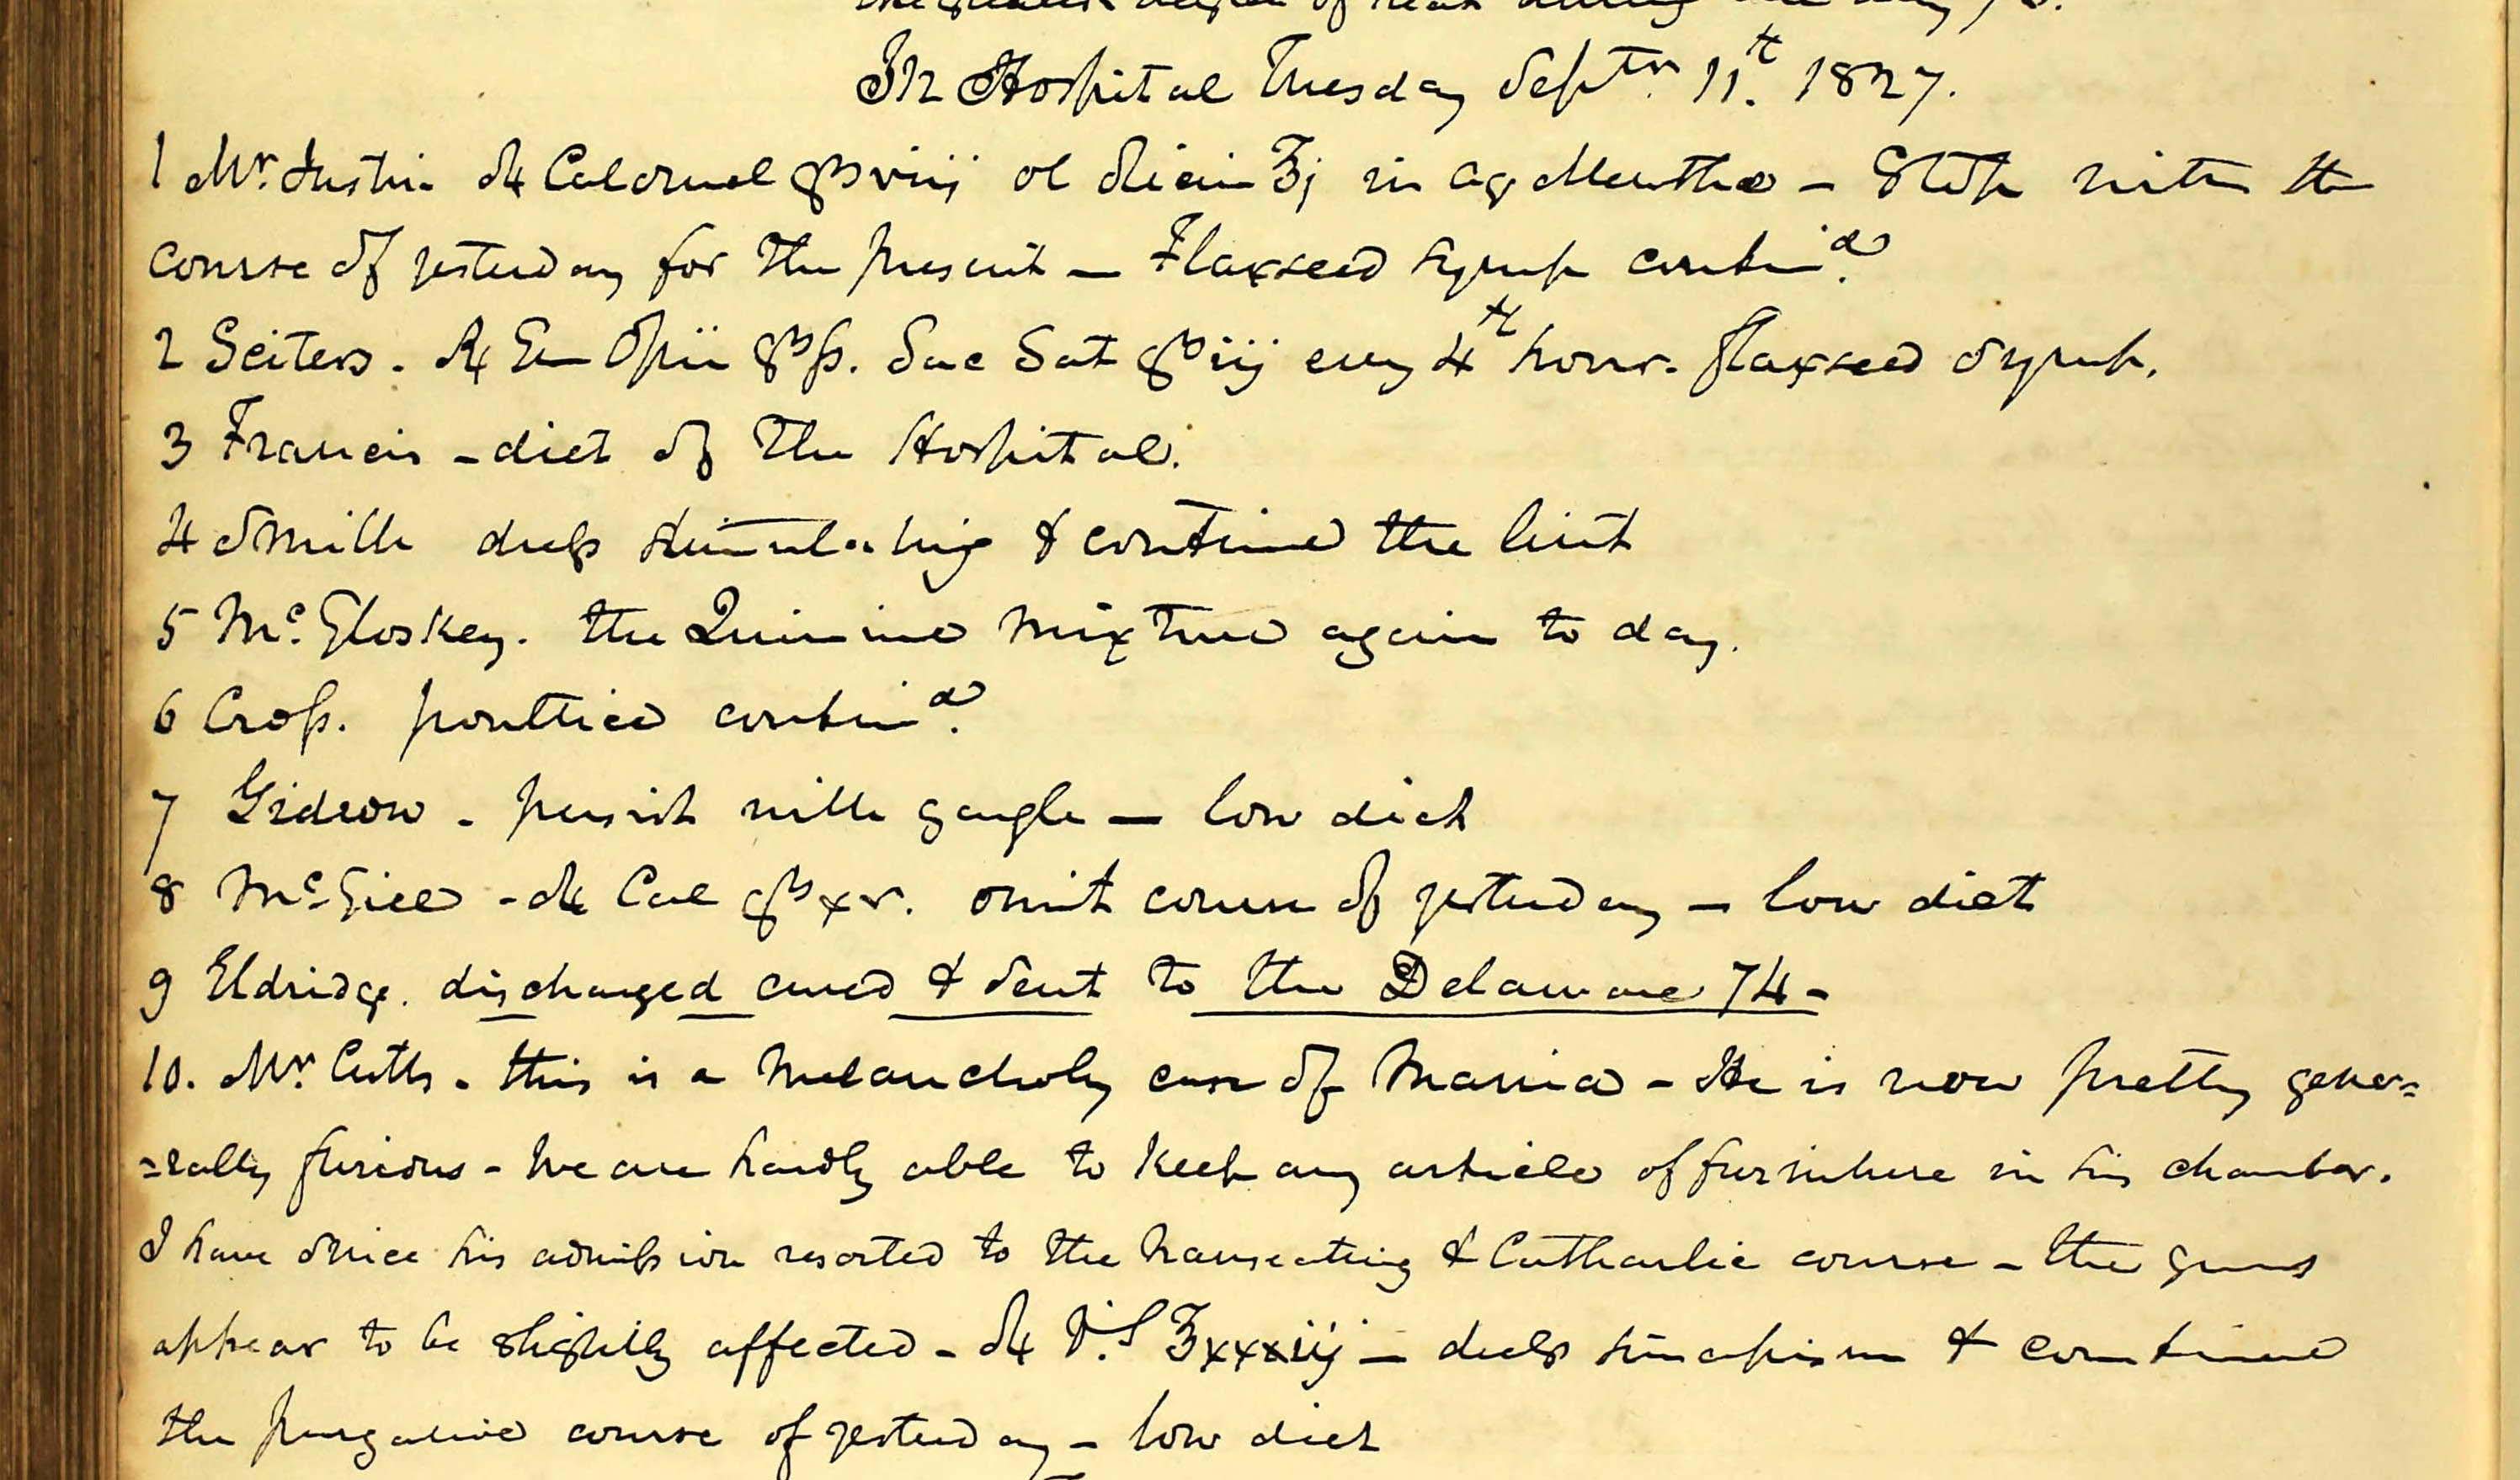 In Hospital Tuesday Septr. 11th. 1827.
1 Mr. Justin ℞ Calomel grs viij ol Ricin ℥j in aq Menthae — Stop with the
course of yesterday for the present — Flaxseed syrup contind.
2 Seiters. ℞ Gum Opii grs ss. Sac Sat grs iij every 4th hour. flaxseed syrup.
3 Francis - diet of the Hospital.
4 Smith dress stimulating & continue the lint
5 Mc. Gloskey. the Quinine mixture again to day.
6 Cross. poultice contind.
7 Gideon - persist with gargle — low diet
8 McGill - ℞ Cal grs xv. omit course of yesterday — low diet
9 Eldridge. discharged cured & sent to the Delaware 74 -
10. Mr. Cutts - this is a melancholy case of Mania - He is now pretty gene=
=rally furious - we are hardly able to keep any article of furniture in his chamber.
I have since his admission resorted to the nauseating & Cathartic course - the gums
appear to be slightly affected - ℞ V.S ℥xxxiij — dress sinapism & continue
the purgative course of yesterday - low diet